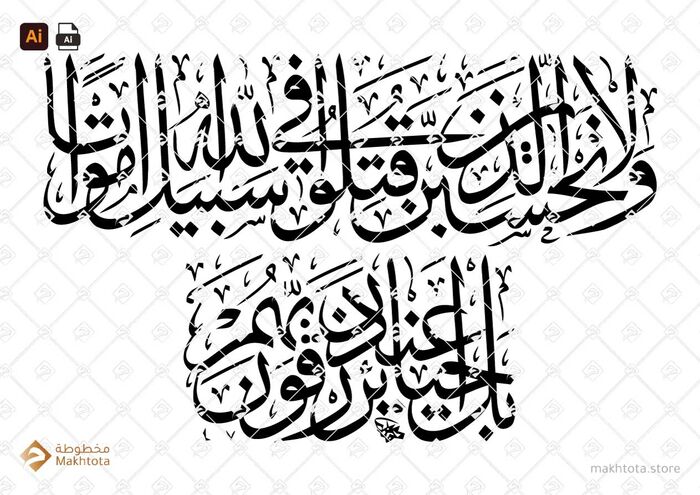 Ai
AI
ولا تحسبن الذين قتلوا في سبيل الله أمواتا
بل أحياء عند ربهم يرزقون
مخطوطة
Makhtota
makhtota.store